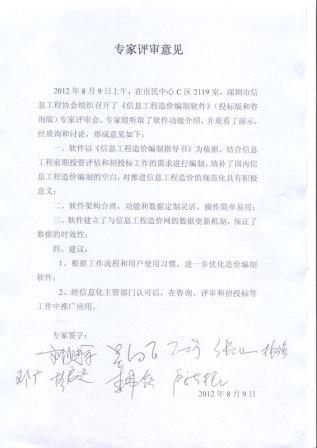 专家评审意见
2012 年 8 月 9 日上午，在市民中心 C 区 2119 室，深圳市信
息工程协会组织召开了《信息工程造价编制软件》（投标版和咨
询版）专家评审会。专家组听取了软件功能介绍，并观看了演示，
经质询和讨论，形成意见如下：
一、软件以《信息工程造价编制指导书》为依据，结合信息
工程前期投资评估和招投标工作的需求进行编制，填补了国内信
息工程造价编制的空白，对推进信息工程造价的规范化具有积极
意义；
二、软件架构合理，功能和数据定制灵活，操作简单易用；
三、软件建立了与信息工程造价网的数据更新机制，保证了
数据的时效性；
四、建议：
1、根据工作流程和用户使用习惯，进一步优化造价编制
软件；
2、经信息化主管部门认可后，在咨询、评审和招投标等
工作中推广应用。
专家签字：
2012 年 8 月 9 日